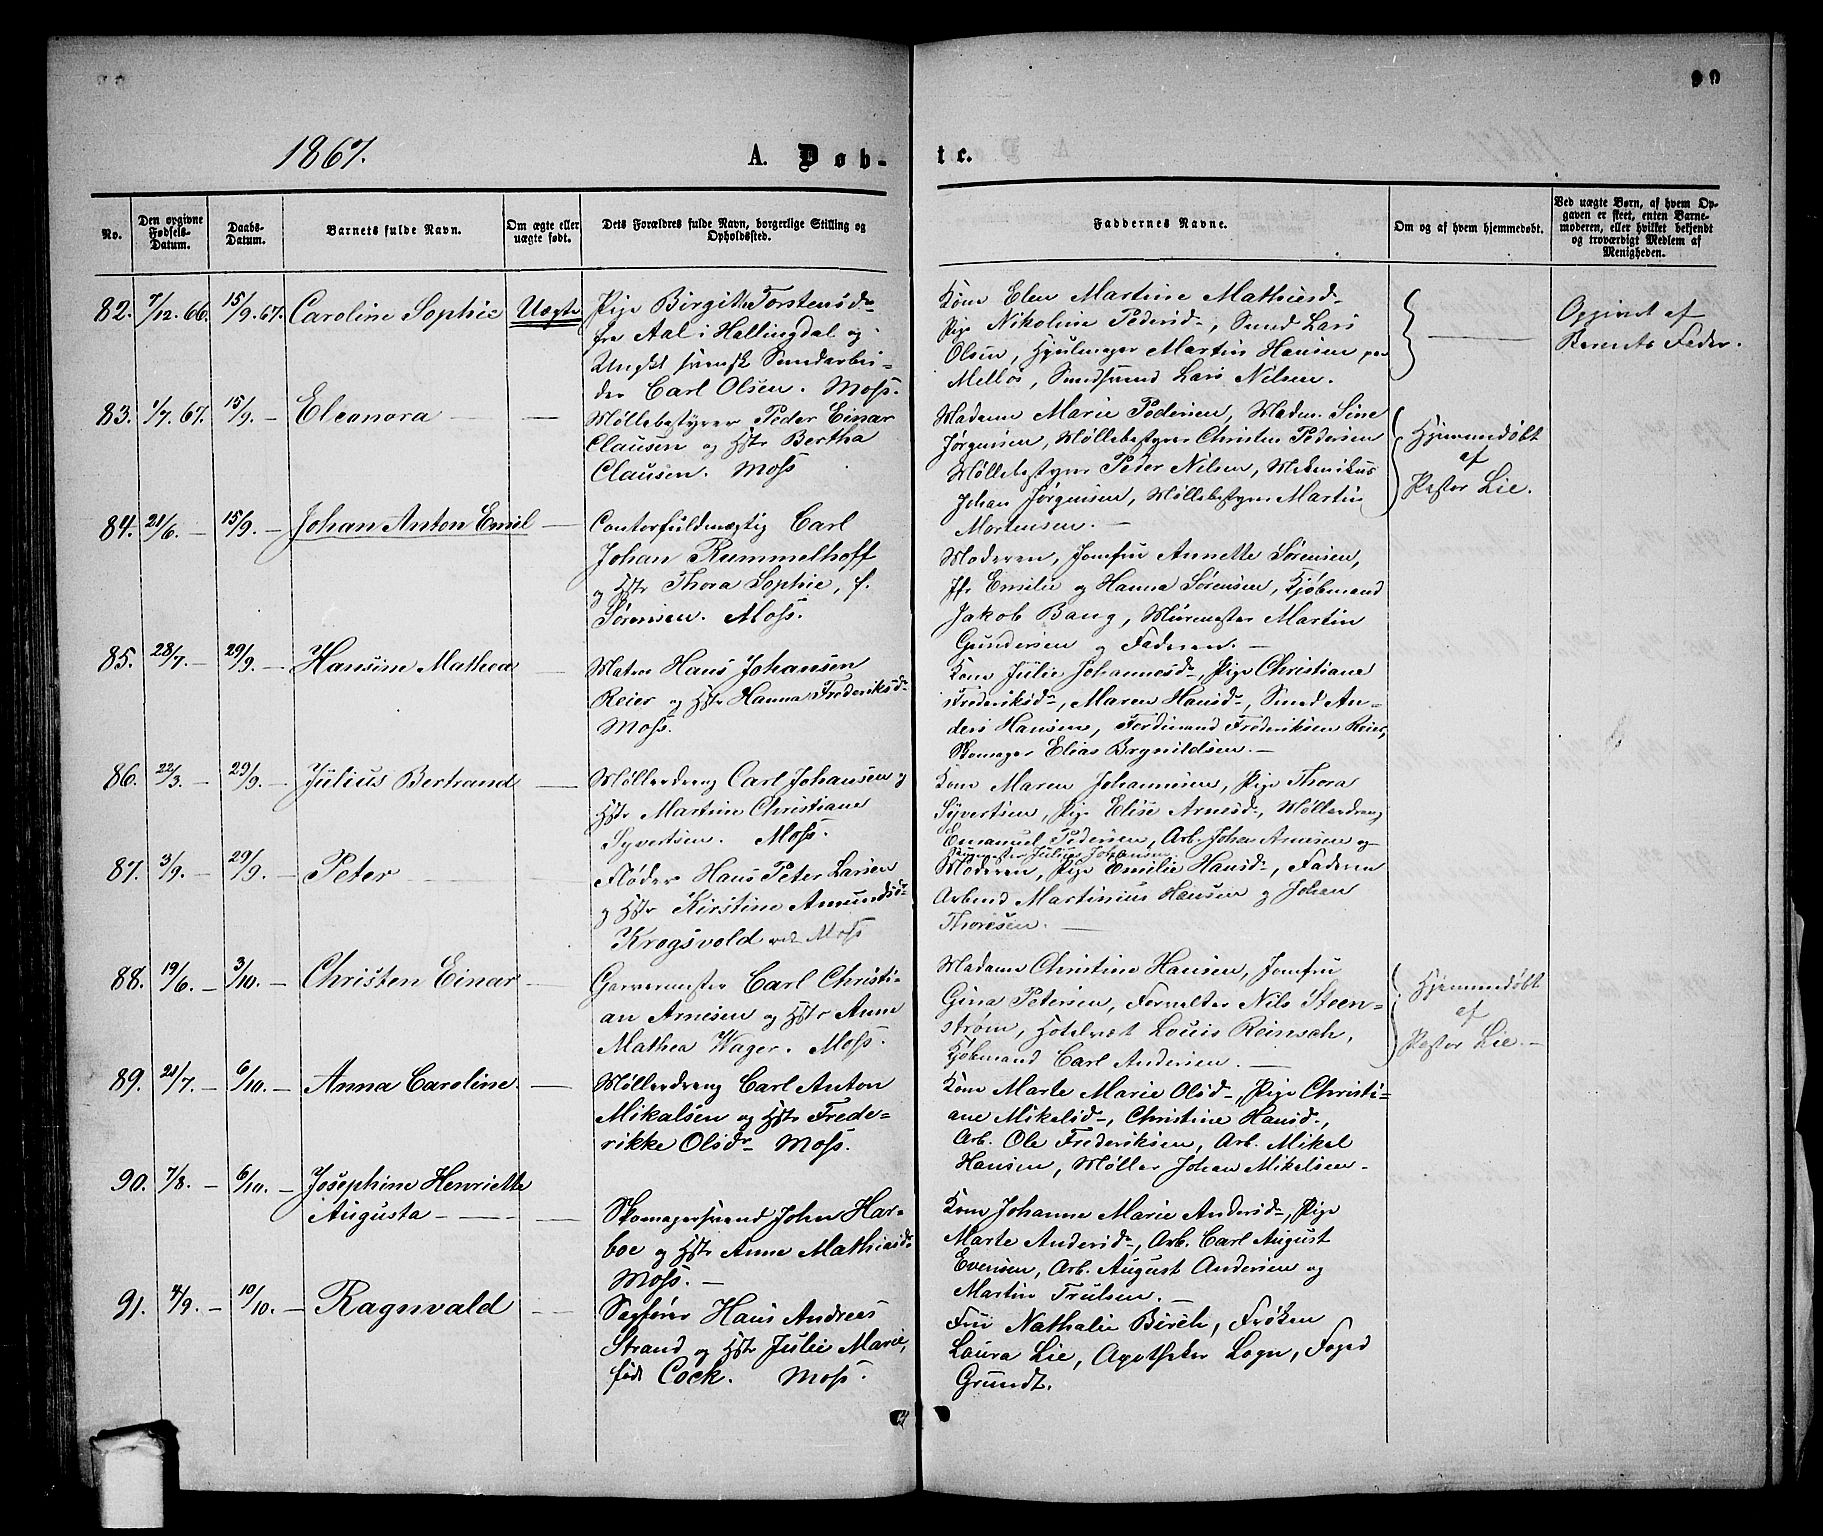 90
1867.
A. Døb-
te.
No.
Den opgivne Fødsels-Datum.
Daabs-Datum.
Barnets fulde Navn.
Om ægte eller uægte født.
Dets Forældres fulde Navn, borgerlige Stilling og Opholdssted.
Faddernes Navne.
Om og af hvem hjemmedøbt.
Ved uægte Børn, af hvem Opgaven er skeet, enten Barnemoderen, eller hvilket bekjendt og troværdigt Medlem af Menigheden.
82. 7/12. 66. 15/9. 67. Caroline Sophie Uægte
Pige Birgitte Torstensd.
fra Aal i Hallingdal og
Ungkl svensk Smedarbei-
der Carl Olsen. Moss.
Kone Elen Martine Mathiesd.
Pige Nikoline Pedersd., Smed Lars
Olsen, Hjulmager Martin Hansen paa
Melløs, Smedsvend Lars Nilsen.
Opgivet af
Barnets Fader.
83. 1/7. 67. 15/9. — Eleonora —
Møllebestyrer Peder Einar
Clausen og Hstr Bertha
Clausen. Moss
Madame Marie Pedersen, Madm. Sine
Jørgensen, Møllebestyrer Christen Pedersen
Møllebestyrer Peder Nilsen, Mekanikus
Johan Jørgensen, Møllebestyrer Martin
Mortensen. —
Hjemmedøbt
af
Pastor Lie.
84. 21/6. — 15/9. — Johan Anton Emil —
Contorfuldmægtig Carl
Johan Rummelhoff
og Hstr Thora Sophie, f.
Sørensen. Moss.
Moderen, Jomfru Annette Sørensen,
Jfr Emilie og Hanna Sørensen, Kjøbmand
Jakob Bang, Murmester Martin
Gundersen og Faderen. —
85. 28/7. — 29/9. — Hansine Mathea —
Matros Hans Johansen
Reier og Hstr Hanna Frederiksd.
Moss.
Kone Julie Johannesd., Pige Christiane
Frederiksd., Maren Hansd., Smed An-
ders Hansen, Ferdinand Frederiksen Reier,
Skomager Elias Brynildsen. —
86. 22/3. — 29/9. — Julius Bertrand —
Møllerdreng Carl Johansen og
Hstr Martine Christiane
Syvertsen. Moss.
Kone Maren Johannesen, Pige Thora
Syvertsen, Pige Elise Arnesd., Møllerdreng
Emanuel Pedersen, Arb. Johan Arnesen og
Julius Johansen
87. 3/9. — 29/9. — Peter —
Fløder Hans Peter Larsen
og Hstr Kirstine Amundsd.
Krogsvold ved Moss
Moderen, Pige Emilie Hansd., Faderen
Arbmd Martinius Hansen og Johan
Thoresen. —
88. 19/6. — 3/10. — Christen Einar —
Garvermester Carl Christi-
an Arnesen og Hstr Anne
Mathea Wager. Moss.
Madame Christine Hansen, Jomfru
Gina Petersen, Forvalter Nils Steen-
strøm, Hotelvært Louis Reinsch,
Kjøbmand Carl Andersen. —
Hjemmedøbt
af
Pastor Lie. —
89. 21/7. — 6/10. — Anna Caroline. —
Møllerdreng Carl Anton
Mikalsen og Hstr Frede-
rikke Olsdr Moss.
Kone Marte Marie Olsd., Pige Christi-
ane Mikelsd., Christine Hansd.,
Arb. Ole Frederiksen, Arb. Mikal
Hansen, Møller Johan Mikelsen. —
90. 7/8. — 6/10. — Josephine Henriette
Augusta — —
Skomagersvend John Har-
boe og Hstr Anne Mathiasd.
Moss. —
Kone Johanne Marie Andersd., Pige
Marte Andersd., Arb. Carl August
Evensen, Arb. August Andersen og
Martin Trulsen. —
91. 4/9. — 10/10. — Ragnvald —
Sagfører Hans Andreas
Strand og Hstr Julie Marie,
født Cock. Moss.
Fru Nathalie Birch, Frøken
Laura Lie, Apotheker Logn, Foged
Grundt.